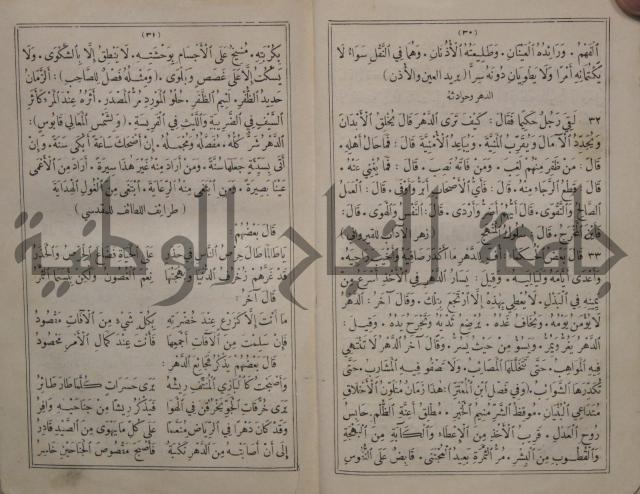 (٣٠)
الفهم . ورائده العينان . وطليعته الأذنان . وهما في النقل سواء لا
يكتمانه أمرا ولا يطويان دونه سرا (يريد العين والأذن)
الدهر وحوادثه
٣٢ لقي رجل حكيما فقال : كيف ترى الدهر قال يخلق الأبدان
ويجدد الآمال ويقرب المنية . ويباعد الأمنية قال : فما حال أهله .
قال : من ظفر منهم لغب . ومن فاته نصب . قال : فما يغني عنه .
قال : قطع الرجاء منه . قال : فأي الأصحاب أبر وأوفى . قال : العمل
الصالح والتقوى . قال أيهم أضر وأردى . قال : النفس والهوى . قال
فأين المخرج . قال : سلوك المنهج (زهر الآداب للقيرواني)
٣٣ قال بعض الحكماء
وقيل : يسار الدهر في الأخذ أسرع من
يمينه في البذل . لا يعطي بهذه إلا ارتجع بتلك . وقال آخر : الدهر
لا يؤمن يومه . ويخاف غده . يرضع ثديه ويجرح يده . وقيل :
الدهر يغر ويمر . ويسوء من حيث يسر . وقال آخر الدهر لا تنتهي
فيه المواهب حتى تتخللها المصائب . ولا تصفو فيه المشارب حتى
تكدرها الشوائب . (وفي فصل لابن المعتز) : هذا زمان متلون الأخلاق
متداعي البنيان . موقظ الشر منيم الخير . مطلق أعنة الظلم . حابس
روح العدل . قريب الأخذ من الإعطاء والكآبة من البهجة
والقطوب من البشر . مر الثمرة بعيد المجتنى . قابض على النفوس
(٣١)
بكربته . منيخ على الأجسام بوحشته . لا ينطق إلا بالشكوى . ولا
يسكت إلا على غصص وبلوى . (ومثله فصل للصاحب) : الزمان
حديد الظفر . لئيم الظفر . حلو المورد مر المصدر . أثره عند المرء كأثر
السيف في الضريبة والليث في الفريسة . (ولشمس المعالي قابوس) :
الدهر شر كله . مفصله ومجمله . إن أضحك ساعة أبكى سنة . وإن
أتى بسيئة جعلها سنة . ومن أراد منه غير هذا سيرة . أراد من الأعمى
عينا بصيرة . ومن ابتغى منه الرعاية . ابتغى من الغول الهداية
(طرائف اللطائف للمقدسي)
قال بعضهم :
يا طالما طال حرص الناس في على الحياة
قد غرهم زخرف الدنيا وبهجتها
قال آخر :
ما أنت إلا كزرع عند خضرته بكل شيء من الآفات مقصود
فإن سلمت من الآفات أجمعها فأنت عند كمال الأمر محصود
قال بعضهم يذكر فجائع الدهر :
وأصبحت كالبازي المنتف ريشه يرى حسرات كلما طار طائر
يرى خرقات الجو يخرقن في الهوا فيذكر ريشا من جناحيه وافر
وقد كان دهرا في الرياض منعما على كل ما يهوى من الصيد قادر
إلى أن أصابته من الدهر نكبة فأصبح مقصوص الجناحين خاسر
جامعة النجاح الوطنية